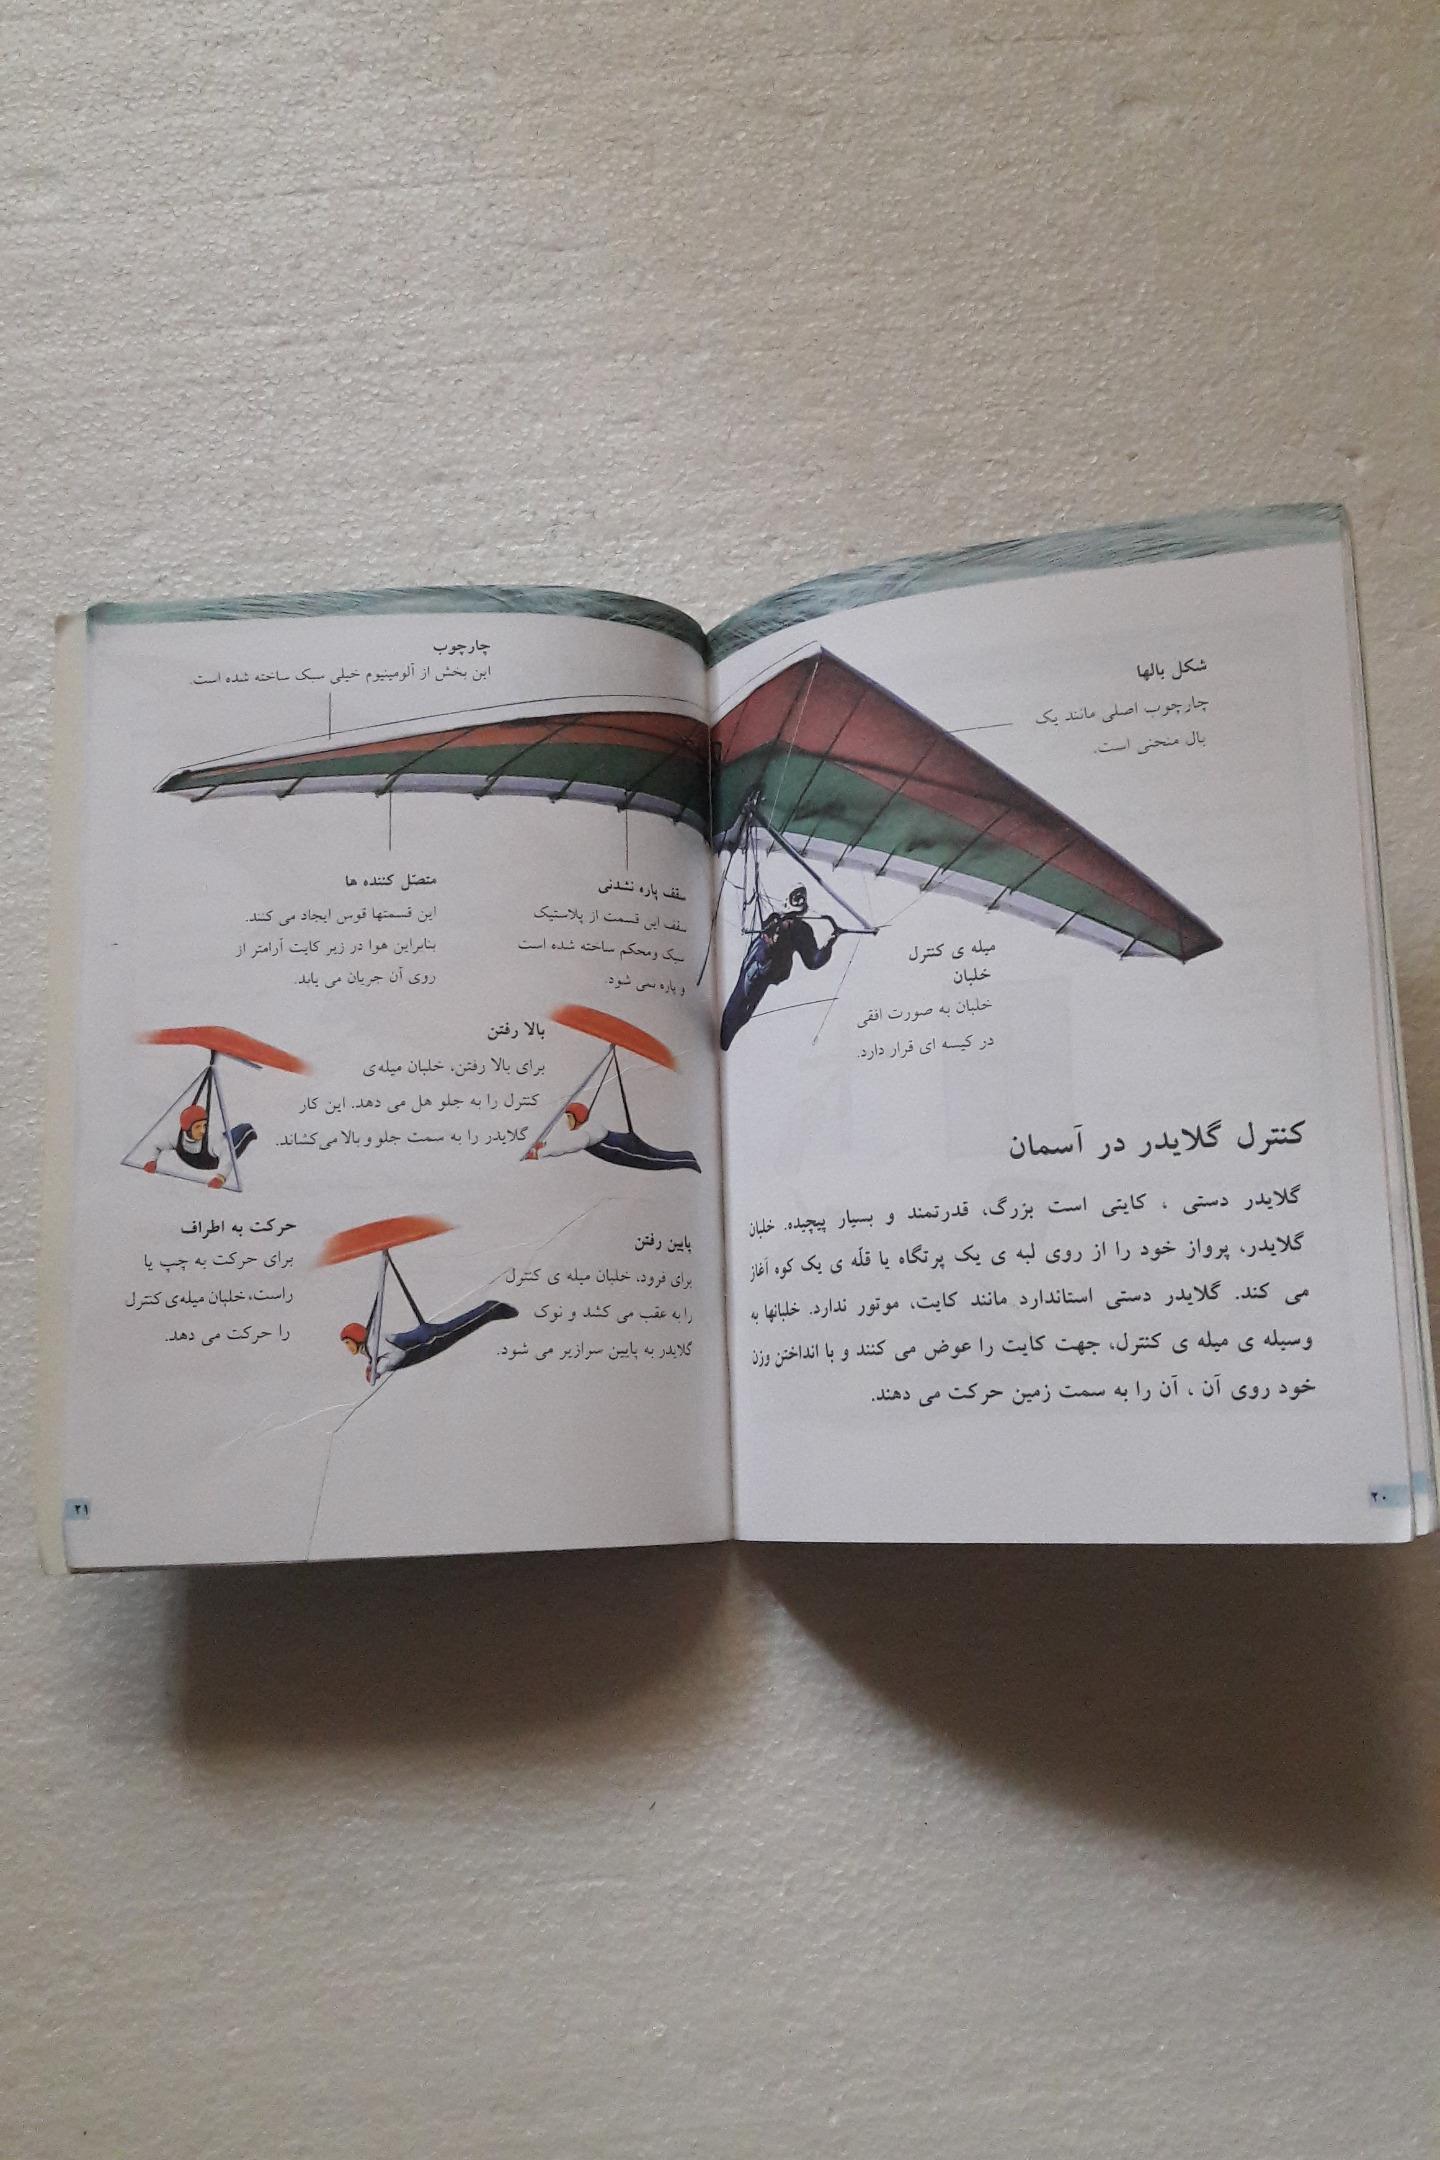 شکل بالها
چارچوب اصلی مانند یک
بال منحنی است.
میله ی کنترل
خلبان
خلبان به صورت افقی
در کیسه ای قرار دارد.
کنترل گلایدر در آسمان
گلایدر دستی ، کایتی است بزرگ، قدرتمند و بسیار پیچیده. خلبان
گلایدر، پرواز خود را از روی لبه ی یک پرتگاه یا قلّه ی یک کوه آغاز
می کند. گلایدر دستی استاندارد مانند کایت، موتور ندارد. خلبانها به
وسیله ی میله ی کنترل، جهت کایت را عوض می کنند و با انداختن وزن
خود روی آن ، آن را به سمت زمین حرکت می دهند.
۲۰
چارچوب
این بخش از آلومینیوم خیلی سبک ساخته شده است.
سقف پاره نشدنی
سقف این قسمت از پلاستیک
سبک ومحکم ساخته شده است
و پاره نمی شود.
متصّل کننده ها
این قسمتها قوس ایجاد می کنند.
بنابراین هوا در زیر کایت آرامتر از
روی آن جریان می یابد.
بالا رفتن
برای بالا رفتن، خلبان میله‌ی
کنترل را به جلو هل می دهد. این کار
گلایدر را به سمت جلو و بالا می‌کشاند.
پایین رفتن
برای فرود، خلبان میله ی کنترل
را به عقب می کشد و نوک
گلایدر به پایین سرازیر می شود.
حرکت به اطراف
برای حرکت به چپ یا
راست، خلبان میله‌ی کنترل
را حرکت می دهد.
۲۱